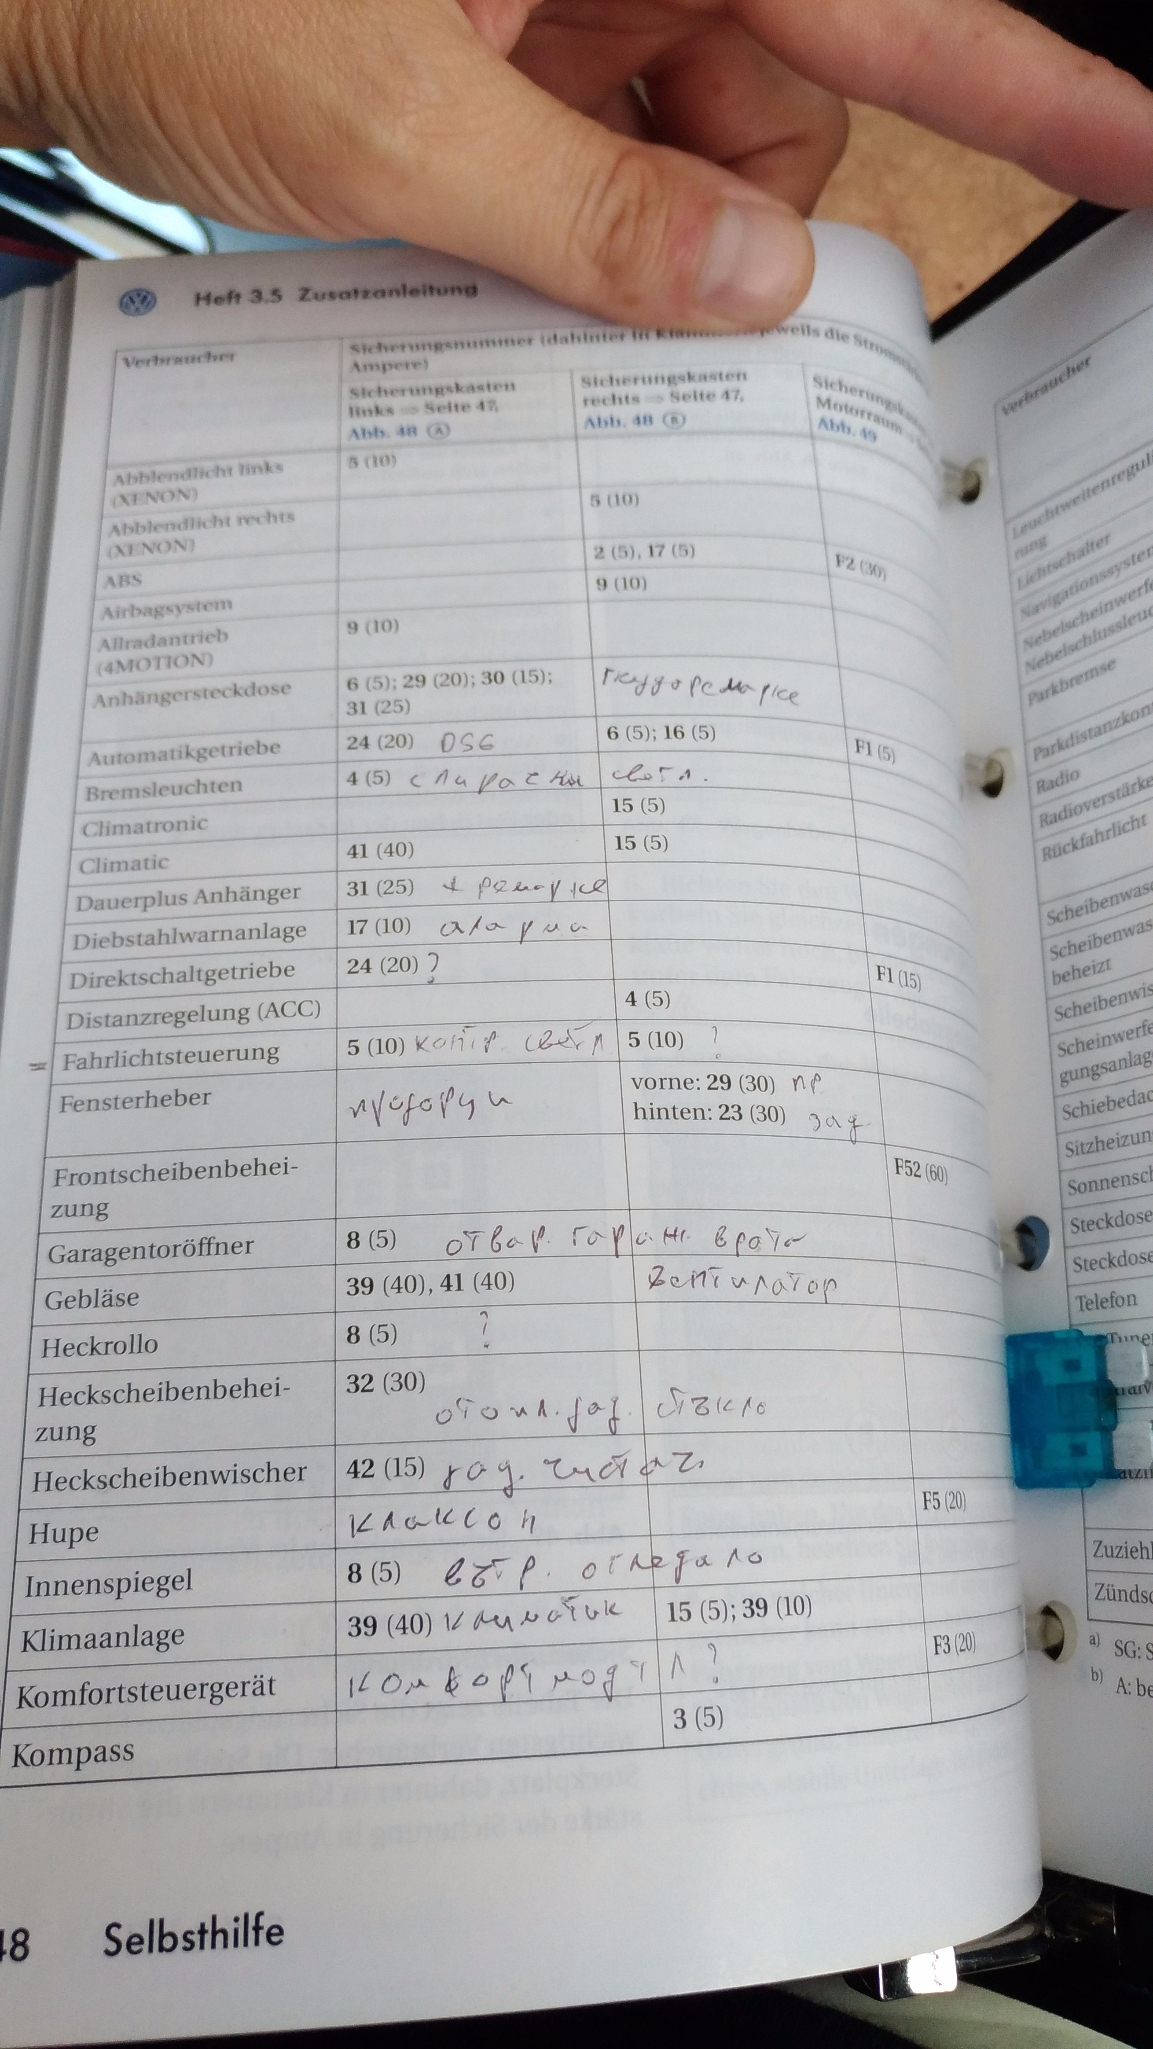 Heft 3.5 Zusatzanleitung
Verbraucher
Sicherungsnummer (dahinter in jeweils die
Ampere)
Sicherungskasten
links ⇒ Seite 47,
Abb. 48 Ⓐ
Sicherungskasten
rechts ⇒ Seite 47,
Abb. 48 Ⓑ
Motorraum
Abb. 49
Abblendlicht links
(XENON)
5 (10)
Abblendlicht rechts
(XENON)
5 (10)
ABS
2 (5), 17 (5)
F2 (30)
Airbagsystem
9 (10)
Allradantrieb
(4MOTION)
9 (10)
Anhängersteckdose
6 (5); 29 (20); 30 (15);
31 (25)
Automatikgetriebe
24 (20) DSG
6 (5); 16 (5)
F1 (5)
Bremsleuchten
4 (5) спирачни светл.
Climatronic
15 (5)
Climatic
41 (40)
15 (5)
Dauerplus Anhänger
31 (25) + ремарке
Diebstahlwarnanlage
17 (10) аларма
Direktschaltgetriebe
24 (20) ?
F1 (15)
Distanzregelung (ACC)
4 (5)
Fahrlichtsteuerung
5 (10) контр. светл
5 (10) ?
Fensterheber
прозорци
vorne: 29 (30) пр
hinten: 23 (30) зад
Frontscheibenbehei-
zung
F52 (60)
Garagentoröffner
8 (5) отвар. гараж. врата
Gebläse
39 (40), 41 (40) вентилатор
Heckrollo
8 (5) ?
Heckscheibenbehei-
zung
32 (30)
отопл. зад. стъкло
Heckscheibenwischer
42 (15) зад. чистач.
Hupe
клаксон
F5 (20)
Innenspiegel
8 (5) вътр. огледало
Klimaanlage
39 (40) климатик
15 (5); 39 (10)
Komfortsteuergerät
комфорт модул ?
F3 (20)
Kompass
3 (5)
48 Selbsthilfe
Verbraucher
rung
Lichtschalter
Parkbremse
Radio
Rückfahrlicht
beheizt
Steckdose
Steckdose
Telefon
a) SG: S
b) A: be